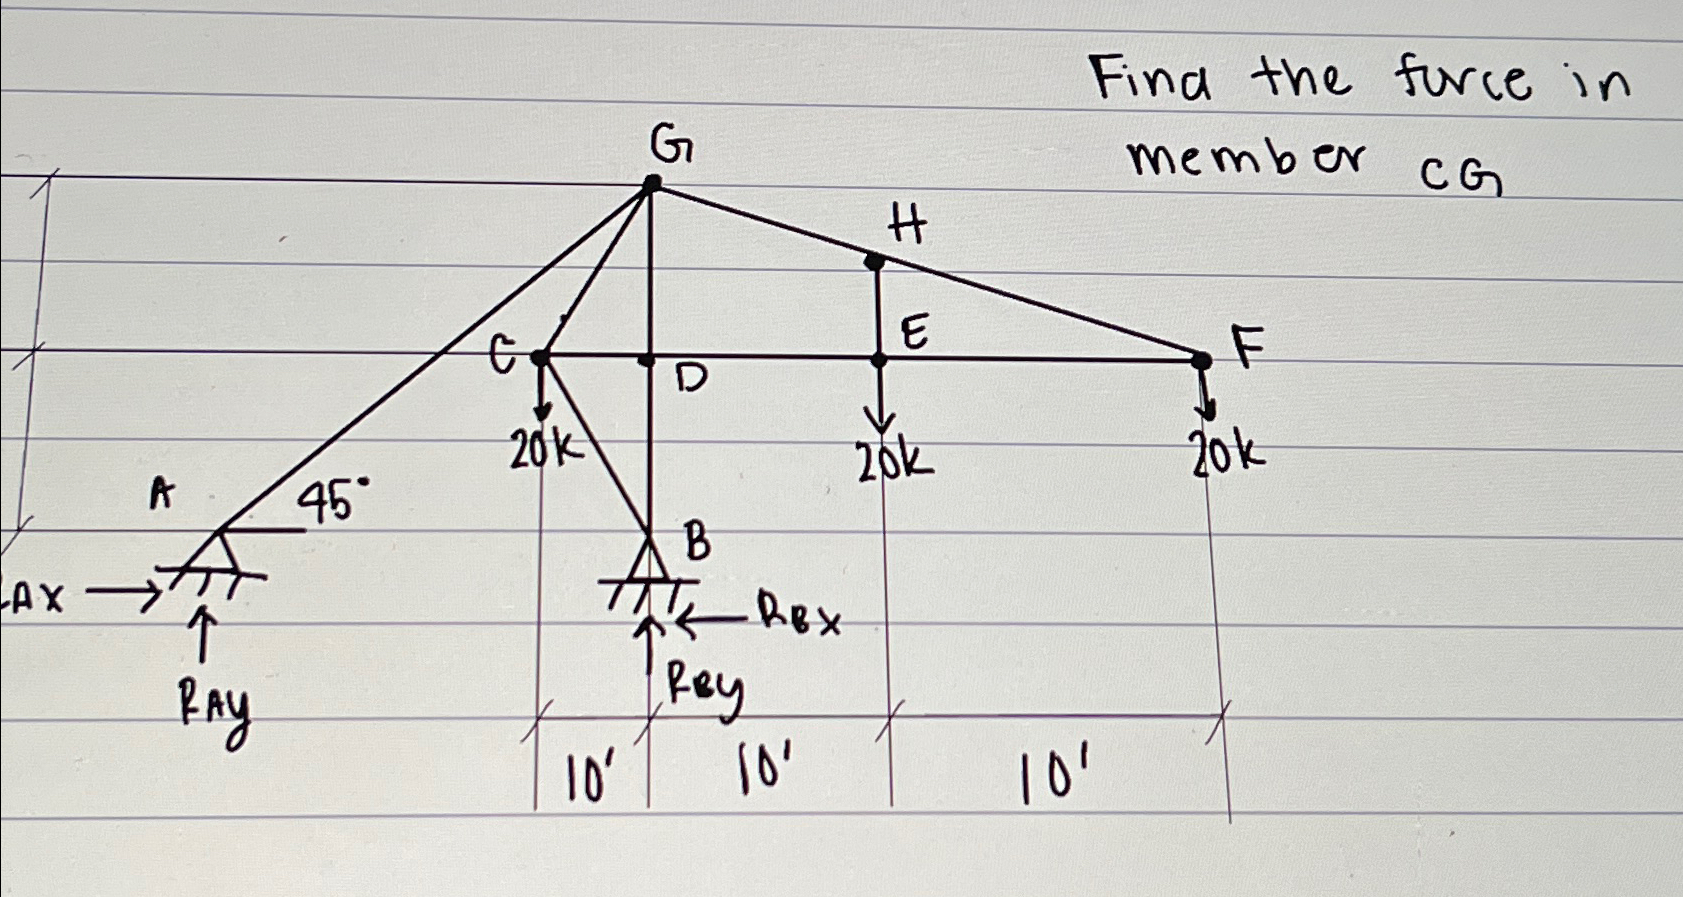 Find the force in
member CG
G
H
C
D
E
F
20k
20k
20k
A
45°
B
AX
RBX
RAy
RBy
10'
10'
10'